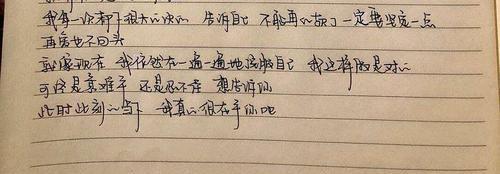 我每一次都下很大的决心 告诉自己 不能再心软了一定要坚定一点
再舍也不回头
就像现在 我依然在一遍一遍地说服自己 我这样做是对的
可还是真难辛 还是忍不住 想告诉你
此时此刻的当下 我真的很在乎你吧